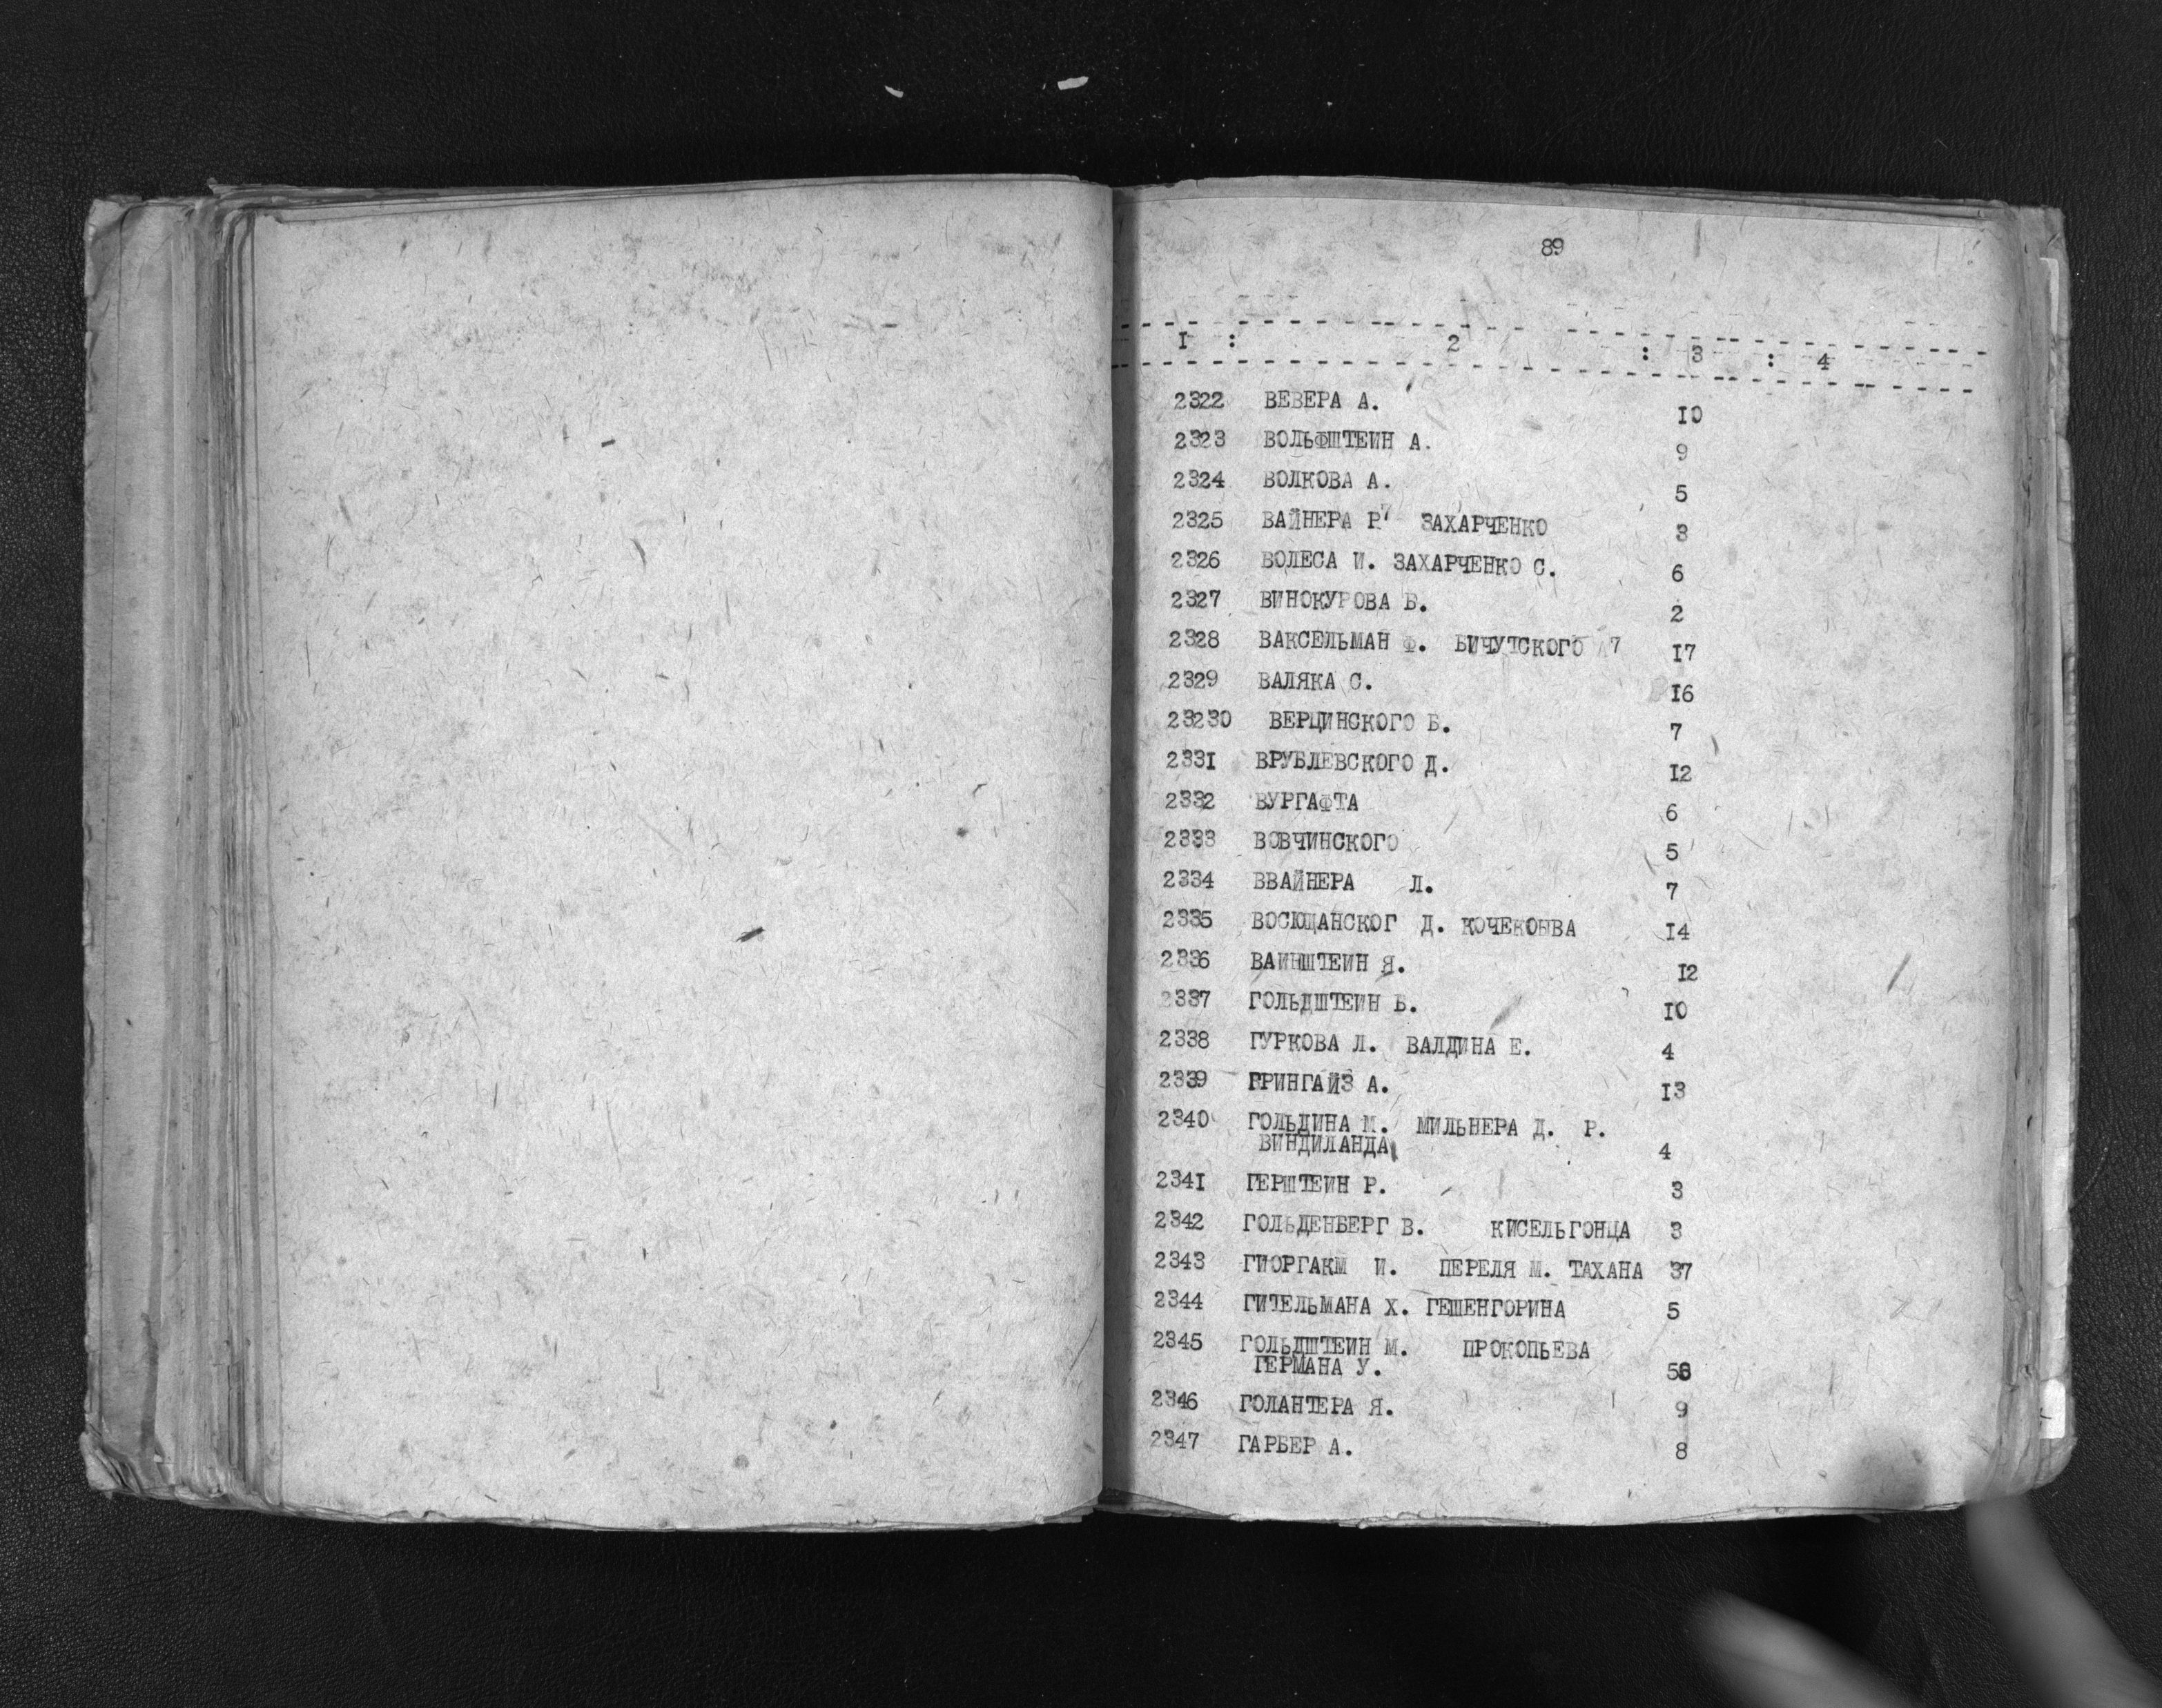 89
I : 2 : 3 : 4
2322 ВЕВЕРА А. IO
2323 ВОЛЬФШТЕИН А. 9
2324 ВОЛКОВА А. 5
2325 ВАЙНЕРА Р7 ЗАХАРЧЕНКО 3
2326 ВОЛЕСА И. ЗАХАРЧЕНКО С. 6
2327 ВИНОКУРОВА Б. 2
2328 ВАКСЕЛЬМАН Ф. БИЧУТСКОГО 7 I7
2329 ВАЛЯКА С. I6
23230 ВЕРЦИНСКОГО Б. 7
233I ВРУБЛЕВСКОГО Д. I2
2332 ВУРГАФТА 6
2333 ВОВЧИНСКОГО 5
2334 ВВАЙНЕРА Л. 7
2335 ВОСЮЩАНСКОГ Д. I4
2336 ВАИНШТЕИН Я. I2
2337 ГОЛЬДШТЕИН Б. IO
2338 ГУРКОВА Л. ВАЛДИНА Е. 4
2339 ГРИНГАЙЗ А. I3
2340 ГОЛЬДИНА М. МИЛЬНЕРА Д. Р.
ВИНДИЛАНДА 4
234I ГЕРШТЕИН Р. 3
2342 ГОЛЬДЕНБЕРГ В. КИСЕЛЬГОНЦА 3
2343 ГИОРГАКМ И. ПЕРЕЛЯ М. ТАХАНА 37
2344 ГИТЕЛЬМАНА Х. ГЕШЕНГОРИНА 5
2345 ГОЛЬДШТЕИН М. ПРОКОПЬЕВА
ГЕРМАНА У.
2346 ГОЛАНТЕРА Я. 9
2347 ГАРБЕР А. 8